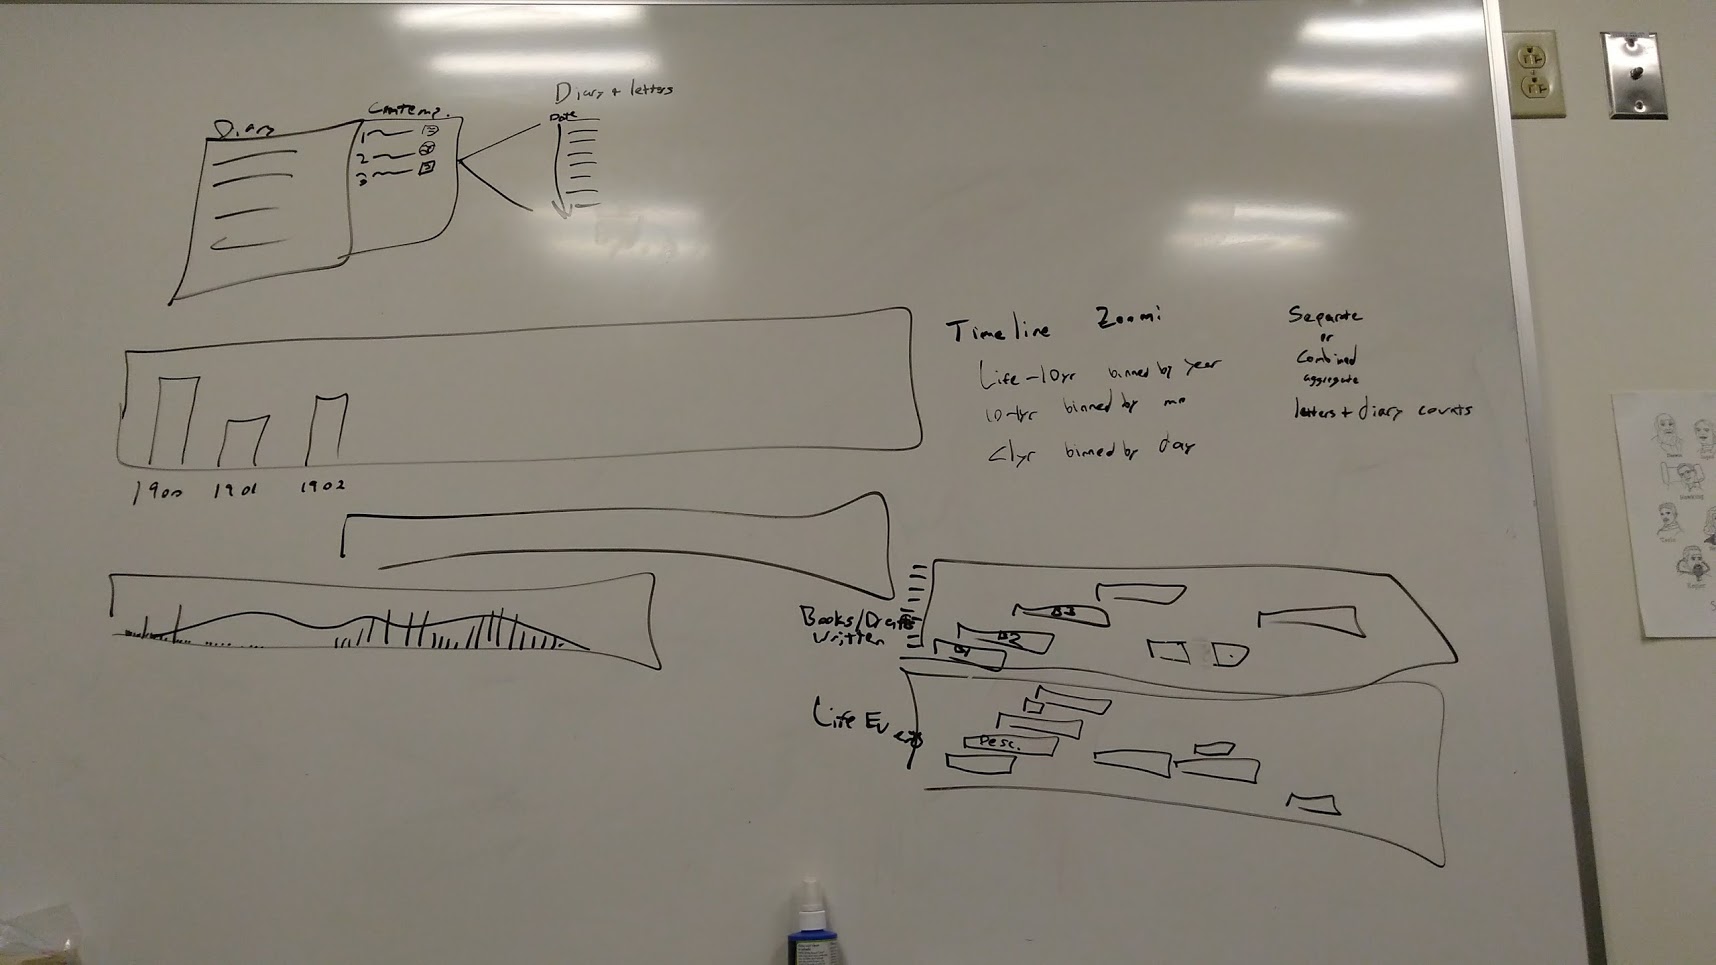 Diary
Contemp.
Diary + letters
Date
1
2
3
1900 1901 1902
Timeline Zoom:
Life - 10yr binned by year
10-1yr binned by mn
<1yr binned by day
Separate
or
Combined
aggregate
letters + diary counts
Books/Drafts
written
B1
B2
B3
Life Events
Desc.